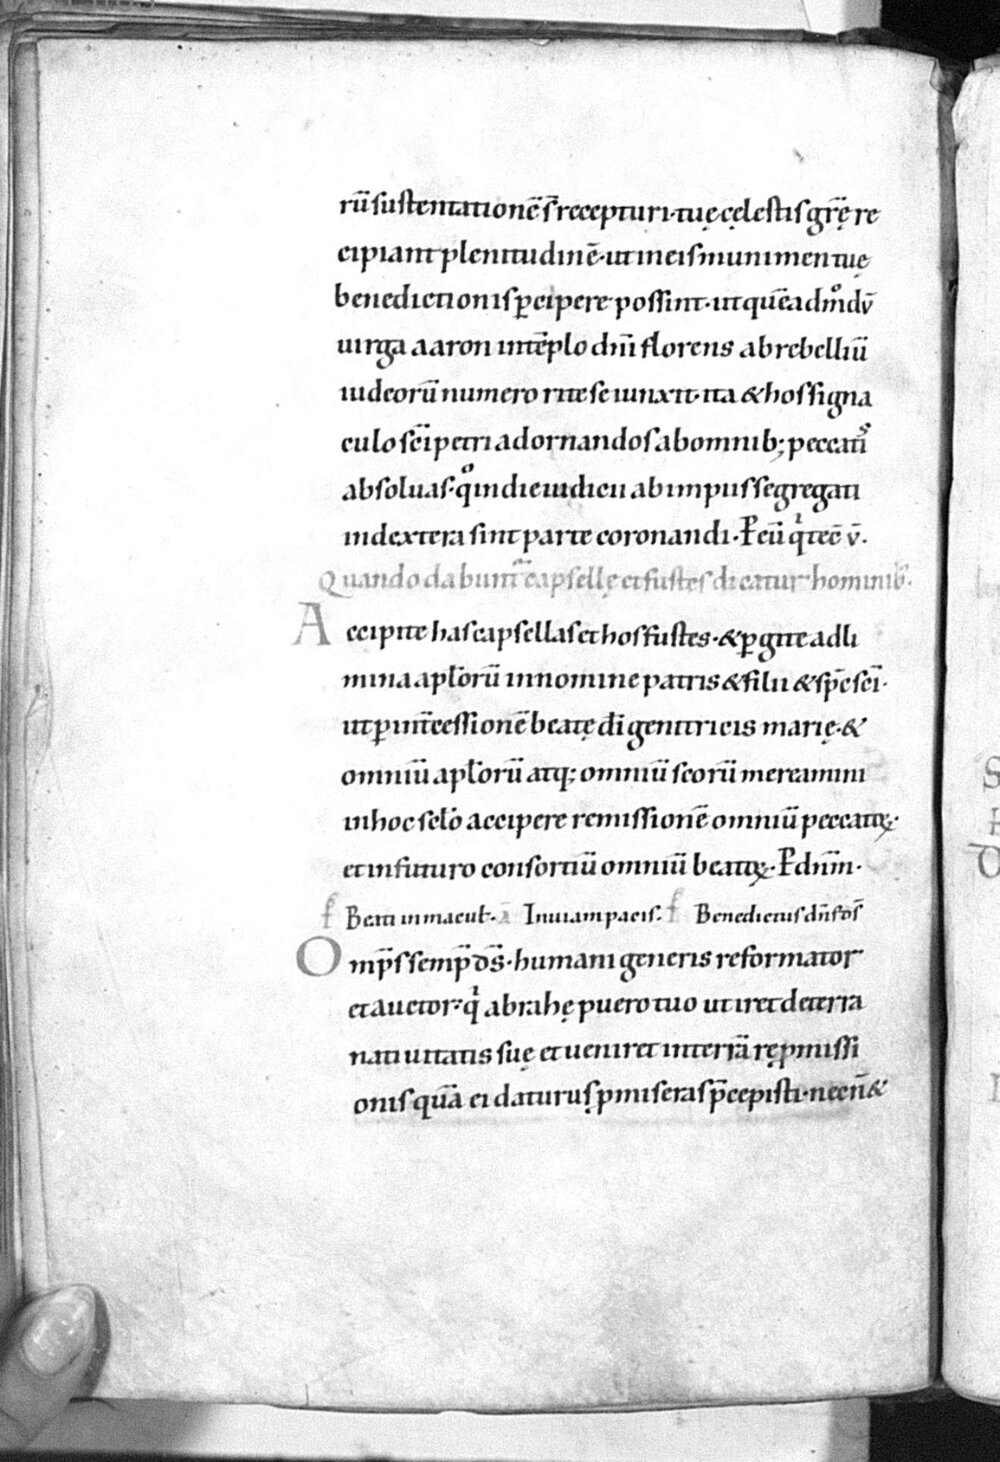 rū sustentationē s̄ recepturi· tuę cęlestis gr̄ę re
cipiant plenitudinē· ut in eis munimen tuę
benedictionis p̱cipere possint· ut quēadmͦdū
uirga aaron in tēplo dn̄i florens ab rebelliū
iudeorū numero rite seiunxit· ita & hos signa
culo sc̄i petri adornandos ab omnib; peccatiˢ
absoluas· qͦ in die iudicii ab impiis segregati
in dextera sint parte coronandi· P̱ eū qⁱ tecū v̄.
Quando dabunt᷑ capsellę et fustes dicatur hominib᷒.
Accipite has capsellas et hos fustes· & p̱gite ad li
mina apl̄orū in nomine patris & filii & sp̄c sc̄i·
ut p̱ int̄cessionē beatę dī genitricis marię· &
omniū apl̄orū atq; omniū sc̄orū mereamini
in hoc scl̄o accipere remissionē omniū peccatoꝝ·
et in futuro consortiū omniū beatoꝝ. P̱ dn̄m·
Beati inmacul̄· ā In uiam pacis. Benedictus dn̄s dS̄
Omp̄s semp̄ dS̄· humani generis reformator
et auctor· qⁱ abrahę puero tuo ut iret de terra
natiuitatis suę et ueniret in terrā rep̱missi
onis quā ei daturus p̱miseras p̄cepisti· necn̄ &